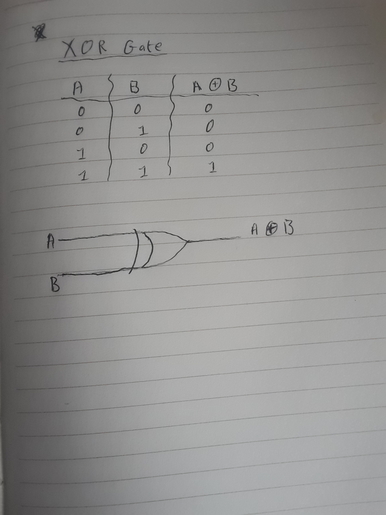 XOR Gate
A B A ⊕ B
0 0 0
0 1 0
1 0 0
1 1 1
A A ⊕ B
B